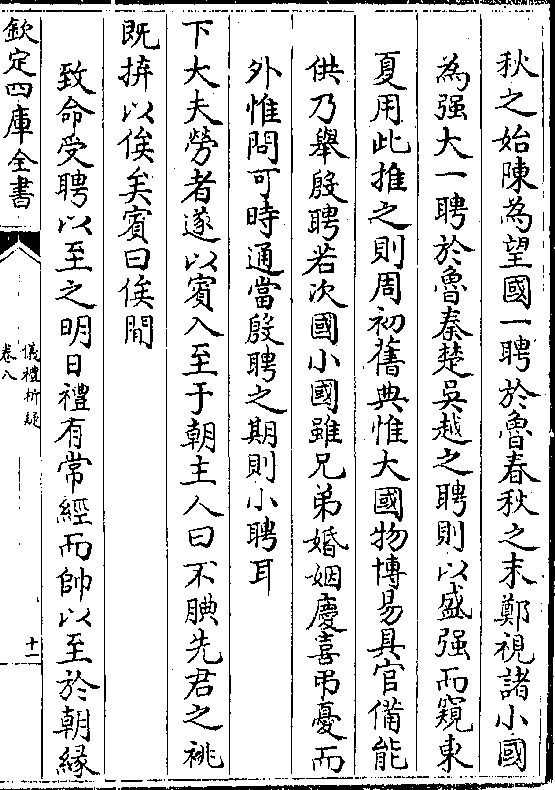 秋之始陳為望國一聘於魯春秋之末鄭視諸小國
為强大一聘於魯秦楚吳越之聘則以盛强而窺東
夏用此推之則周初舊典惟大國物博易具官備能
供乃舉殷聘若次國小國雖兄弟婚姻慶喜弔憂而
外惟問可時通當殷聘之期則小聘耳
下大夫勞者遂以賓入至于朝主人曰不腆先君之祧
既拚以俟矣賓曰俟閒
致命受聘以至之明日禮有常經而帥以至於朝縁
欽定四庫全書
儀禮析疑
卷八
十一